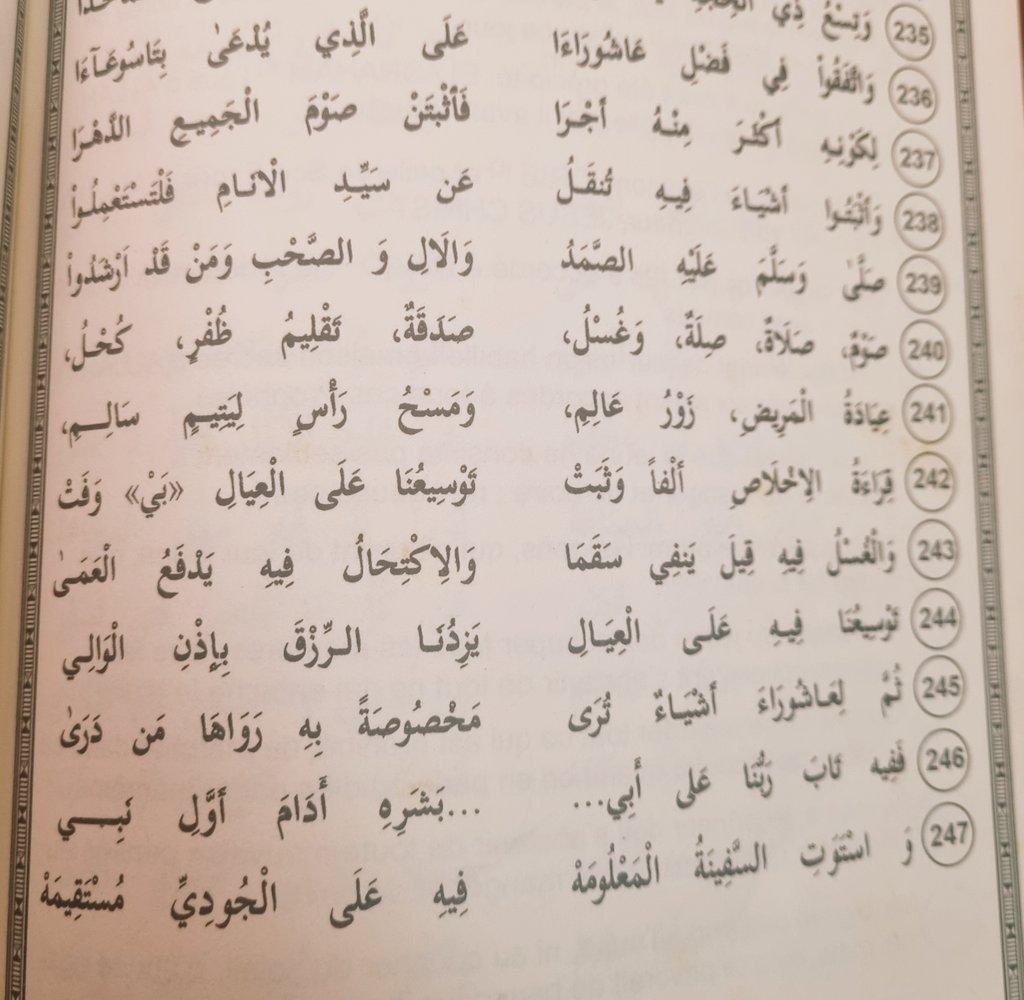 235 وَتِسْعُ ذِي
236 وَاتَّفَقُواْ فِي فَضْلِ عَاشُورَاءَا عَلَى الَّذِي يُدْعَىٰ بِتَاسُوعَآءَا
237 لِكَوْنِهِ اَكْثَرَ مِنْهُ أَجْرَا فَأَثْبَتَنْ صَوْمَ الْجَمِيعِ الدَّهْرَا
238 وَأَثْبَتُوا أَشْيَاءَ فِيهِ تُنقَلُ عَن سَيِّدِ الْاَنَامِ فَلْتَسْتَعْمِلُواْ
239 صَلَّىٰ وَسَلَّمَ عَلَيْهِ الصَّمَدُ وَالَالِ وَ الصَّحْبِ وَمَنْ قَدْ اَرْشَدُواْ
240 صَوْمٌ، صَلَاةٌ، صِلَةٌ، وَغُسْلُ، صَدَقَةٌ، تَقْلِيمُ ظُفْرٍ، كُحْلُ،
241 عِيَادَةُ الْمَرِيضِ، زَوْرُ عَالِمِ، وَمَسْحُ رَأْسٍ لِيَتِيمٍ سَالِمِ،
242 قِرَاءَةُ الِاخْلَاصِ أَلْفاً وَثَبَتْ تَوْسِيعُنَا عَلَى الْعِيَالِ «بَيْ» وَفَتْ
243 وَالْغُسْلُ فِيهِ قِيلَ يَنفِي سَقَمَا وَالِاكْتِحَالُ فِيهِ يَدْفَعُ الْعَمَىٰ
244 تَوْسِيعُنَا فِيهِ عَلَى الْعِيَالِ يَزِدُنَا الرِّزْقَ بِإِذْنِ الْوَالِي
245 ثُمَّ لِعَاشُورَاءَ أَشْيَاءٌ تُرَى مَخْصُوصَةً بِهِ رَوَاهَا مَن دَرَىٰ
246 فَفِيهِ تَابَ رَبُّنَا عَلى أَبِي... ...بَشَرِهِ أَدَامَ أَوَّلِ نَبِي
247 وَ اسْتَوَتِ السَّفِينَةُ الْمَعْلُومَهْ فِيهِ عَلَى الْجُودِيِّ مُسْتَقِيمَهْ